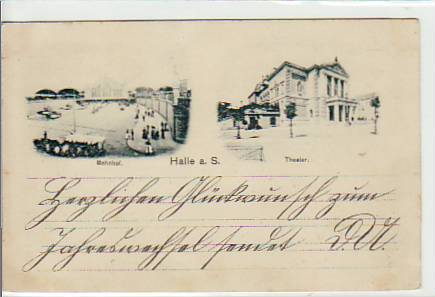 Bahnhof.
Halle a. S.
Theater.
Herzlichen Glückwunsch zum
Jahreswechsel sendet